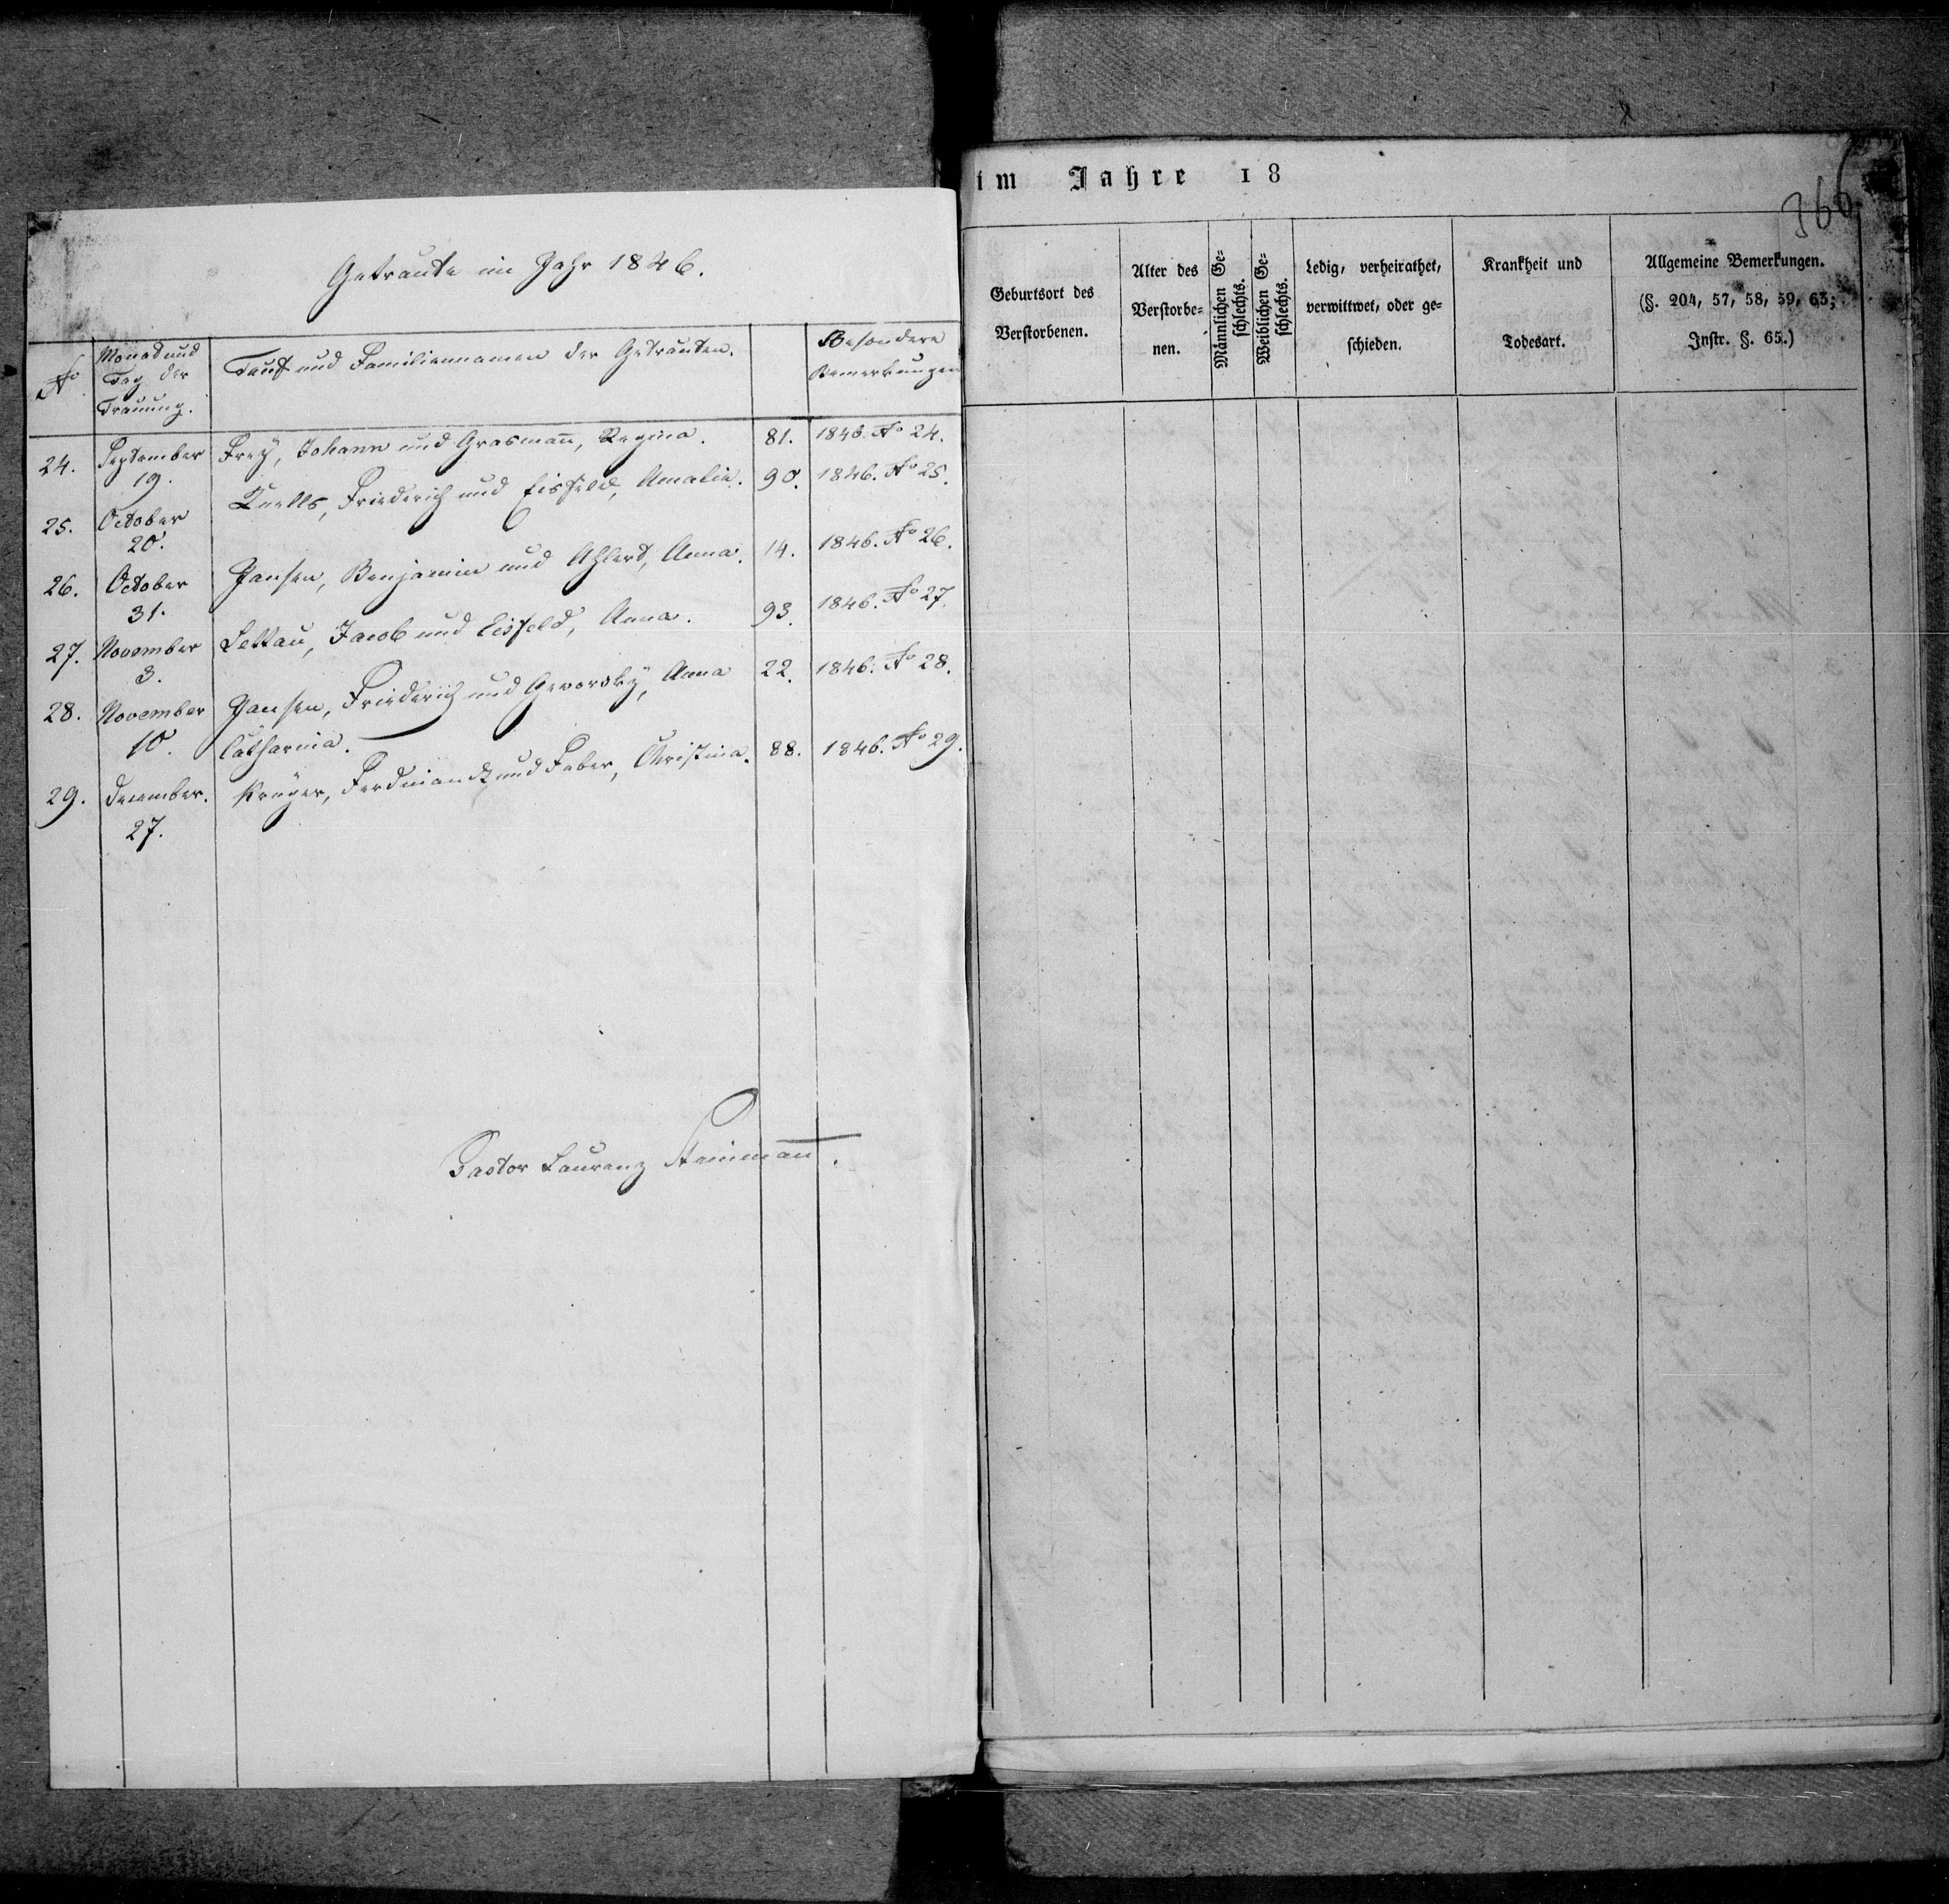 Getraute im Jahr 1846.
No
Monat und
Tag der
Trauung.
Tauf und Familiennamen der Getrauten.
Besondere
Bemerkungen
24. September 19. Frey, Johann und Grasman̄, Regina. 81. 1846. No 24.
25. October 20. Knells, Friederich und Eisfeld, Amalie. 90. 1846. No 25.
26. October 31. Jansen, Benjamin und Ahlert, Anna. 14. 1846. No 26.
27. November 3. Lettau, Jacob und Eisfeld, Anna. 93. 1846. No 27.
28. November 10. Jansen, Friederich und Anna 22. 1846. No 28.
Catharina.
29. December. 27. Krüger, Ferdinand und Faber, Christina. 88. 1846. No 29.
Pastor Laurenz
im Jahre 18
360
Geburtsort des
Verstorbenen.
Alter des
Verstorbe-
nen.
Männlichen Ge-
schlechts.
Weiblichen Ge-
schlechts.
Ledig, verheirathet,
verwittwet, oder ge-
schieden.
Krankheit und
Todesart.
Allgemeine Bemerkungen.
(§. 204, 57, 58, 59, 63;
Instr. §. 65.)